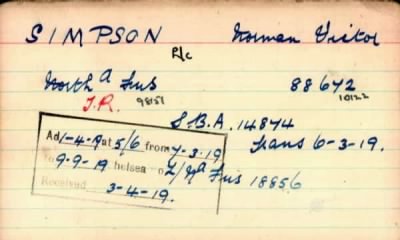 SIMPSON Norman Victor
P/c
North'a Fus 88672
T.R. 98151 10122
S.B.A. 14874
Trans 6-3-19.
Ad 1-4-19 at 5/6 from 7-3-19
To 9-9-19 Chelsea 2/N'a Fus 18856
Received 3-4-19.